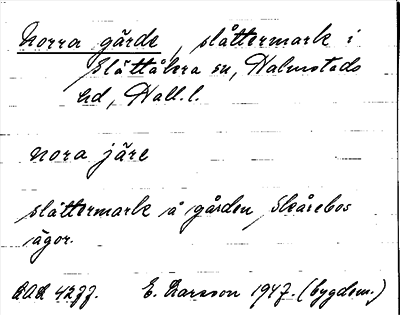 Norra gärde, slåttermark i
Slättåkra sn, Halmstads
hd, Hall. l.
nora järe
slåttermark å gården Skårebos
ägor.
LAL 4277. E. Larsson 1947. (bygdem.)